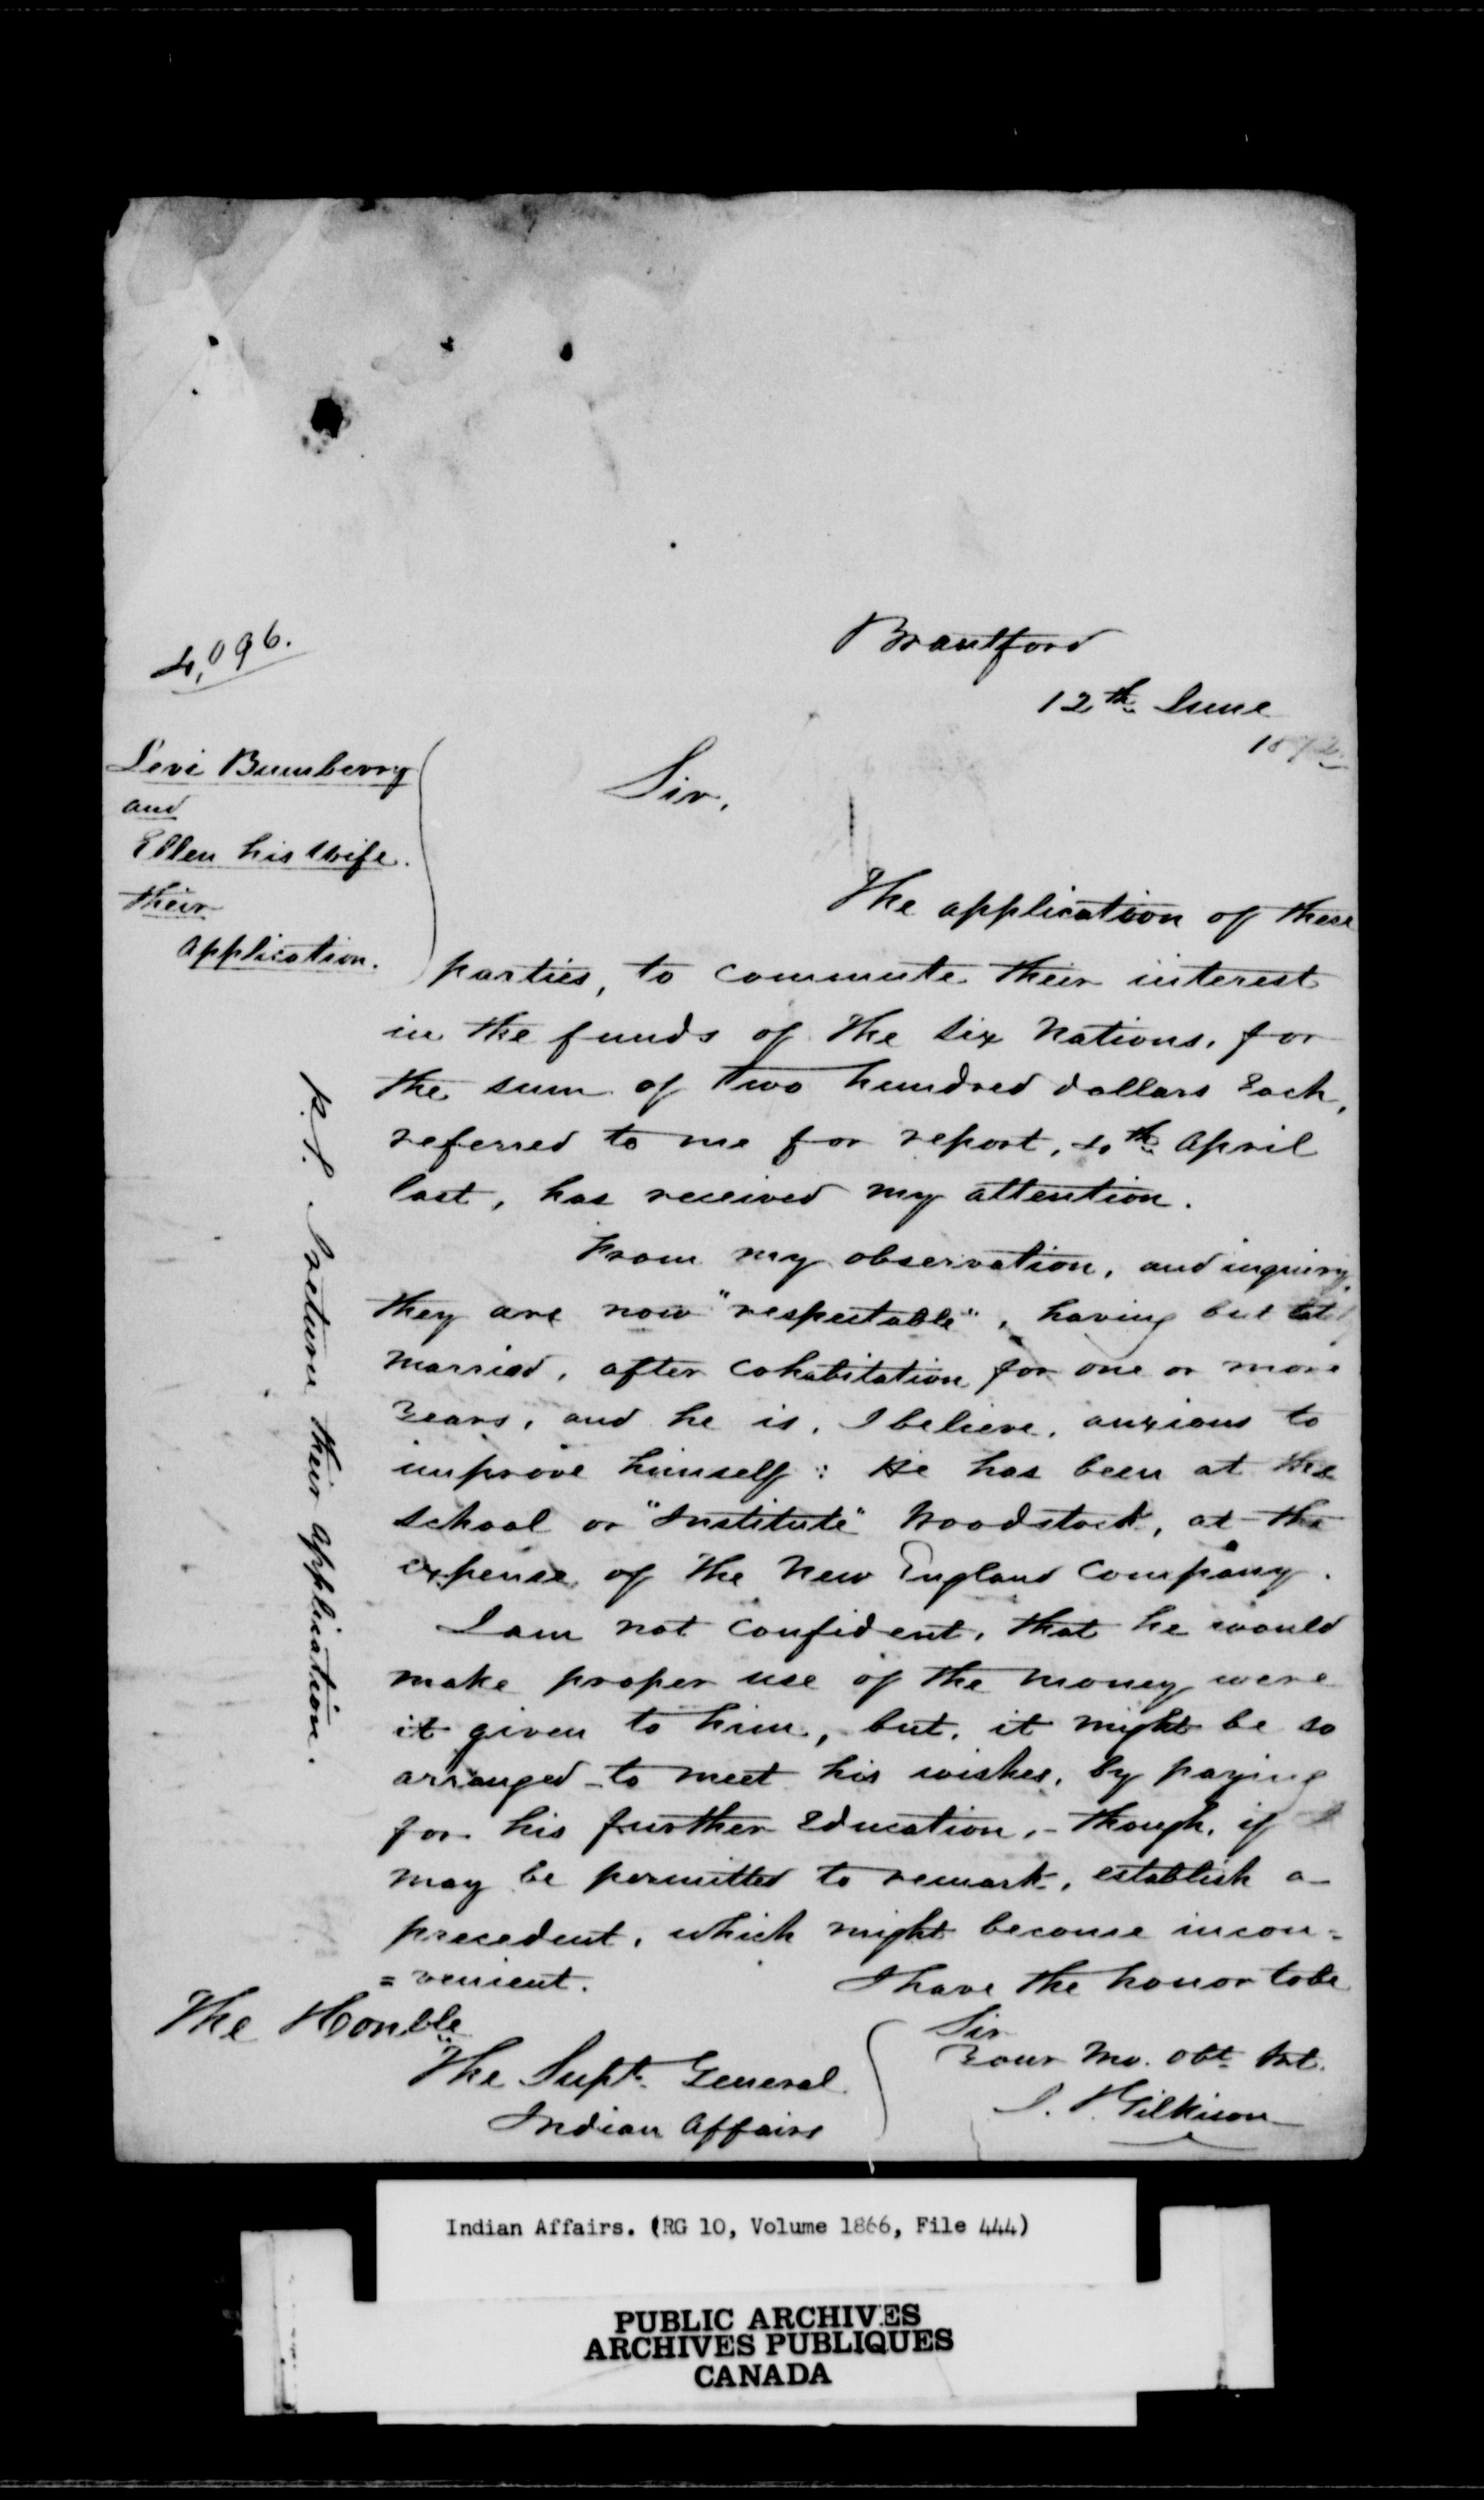 4,096.
Brantford
12th June
1872
Levi Bumberry
and
Ellen his Wife.
their
application.
Sir,
The application of these
parties, to commute their interest
in the funds of the Six Nations, for
the sum of Two hundred dollars Each,
referred to me for report, 4th April
last, has received my attention.
From my observation, and inquiry,
they are now "respectable", having but lately
married, after cohabitation for one or more
Years, and he is, I believe, anxious to
improve himself: He has been at the
school or "Institute" Woodstock, at the
expense of the New England Company.
I am not confident, that he would
make proper use of the money were
it given to him, but, it might be so
arranged to meet his wishes, by paying
for his further Education,- though, if I
may be permitted to remark, establish a
precedent, which might become incon=
=venient.
I have the honor to be
Sir
Your Mo. Obt. Svt.
J. Gilkison
The Honble
The Supt. General
Indian Affairs
P.S. I return their application.
Indian Affairs. (RG 10, Volume 1866, File 444)
PUBLIC ARCHIVES
ARCHIVES PUBLIQUES
CANADA